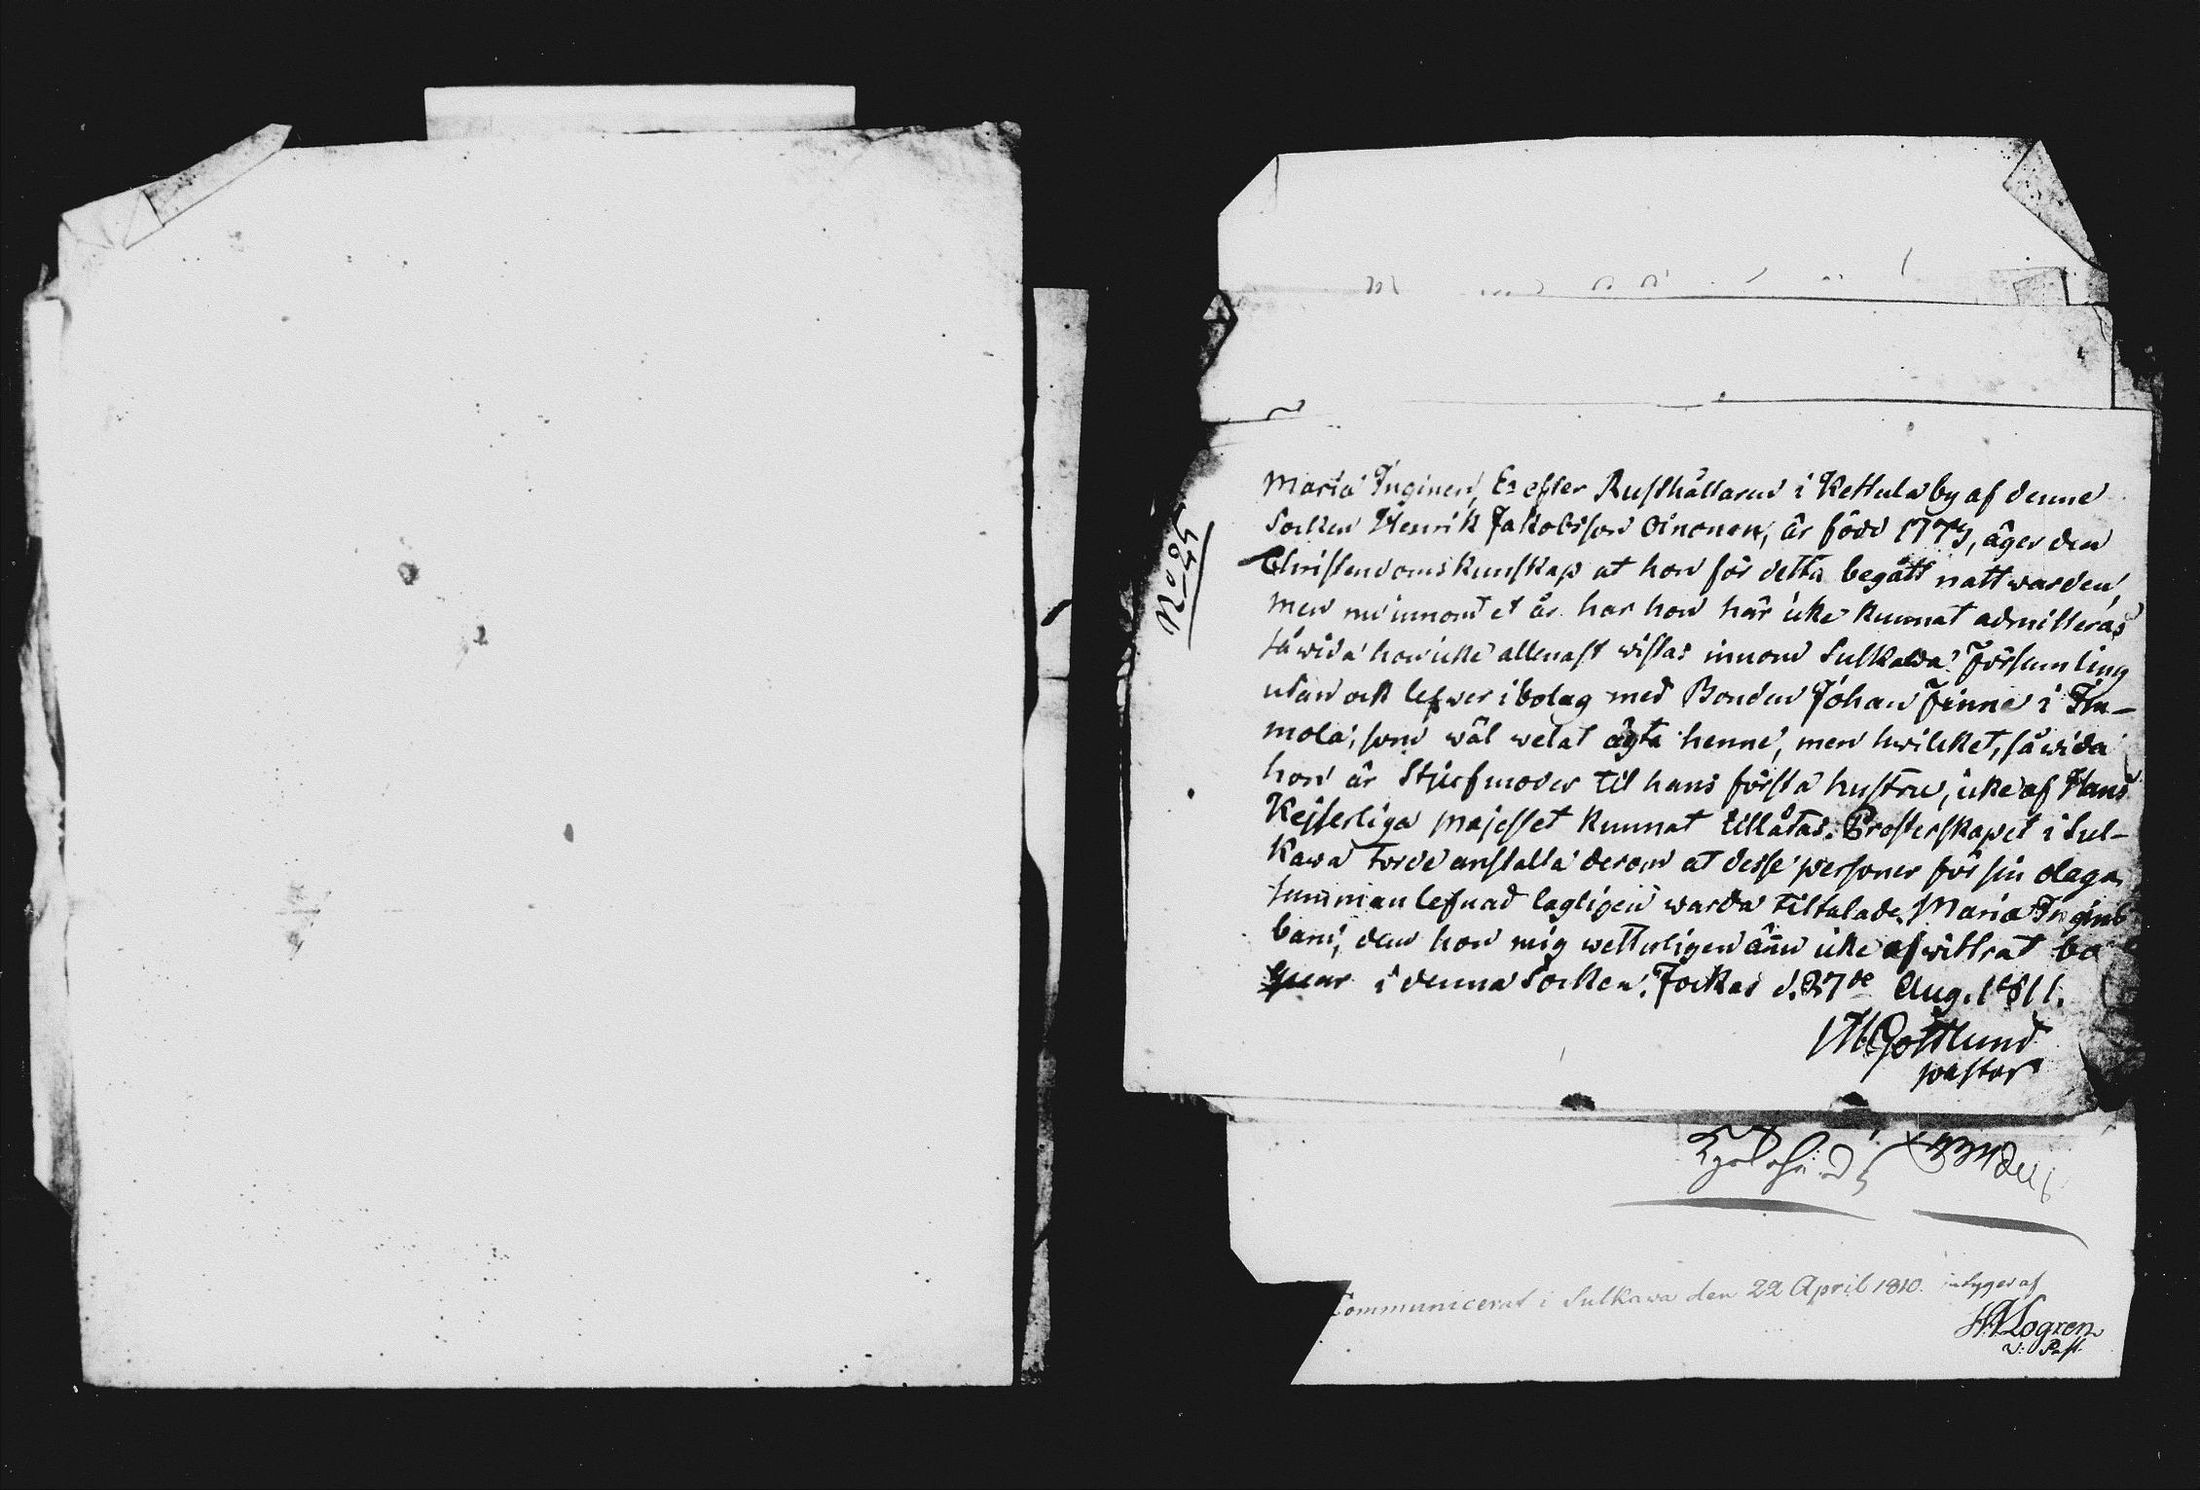 No 25
Maria Inginen, Ea efter Rusthållaren i Kettula by af denne
Socken Henrik Jakobsson Oinonen, är född 1773, äger den
Christendomskunskap at hon för detta begått nattwarden,
men nu innom et år har hon här icke kunnat admitteras
såwida hon icke allenast wistas innom Sulkawa Församling
utan ock lefwer i bolag med Bonden Johan Finne i Im-
mola, som wäl welat ägta henne, men hwilcket, såwida
hon är Stjufmoder til hans första hustru, icke af Hans
Kejserliga Majestet kunnat tillåtas. Presterskapet i Sul-
kawa torde anstalta derom at desse personer för sin olaga
samman lefnad lagligen warda tiltalade. Maria Ingins
barn, dem hon mig wetterligen ännu icke afwittrat bo
i denna Socken. Jockas d. 27de Aug. 1811.
M Gottlund
pastor
Communicerat i Sulkawa den 22 April 1810. intygas af
Logren
v: Past.